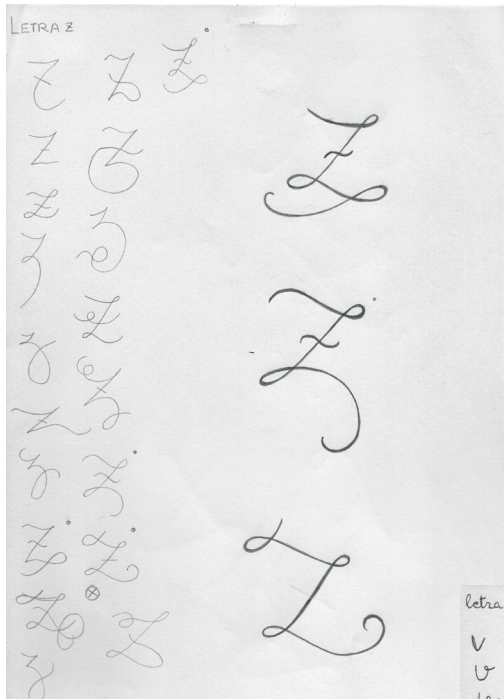 LETRA Z
Z Z Z
Z Z
Z Z
Z Z
Z Z
Z Z
Z Z
Z Z
Z Z
Z
Z
Z
Z
letra
V
V